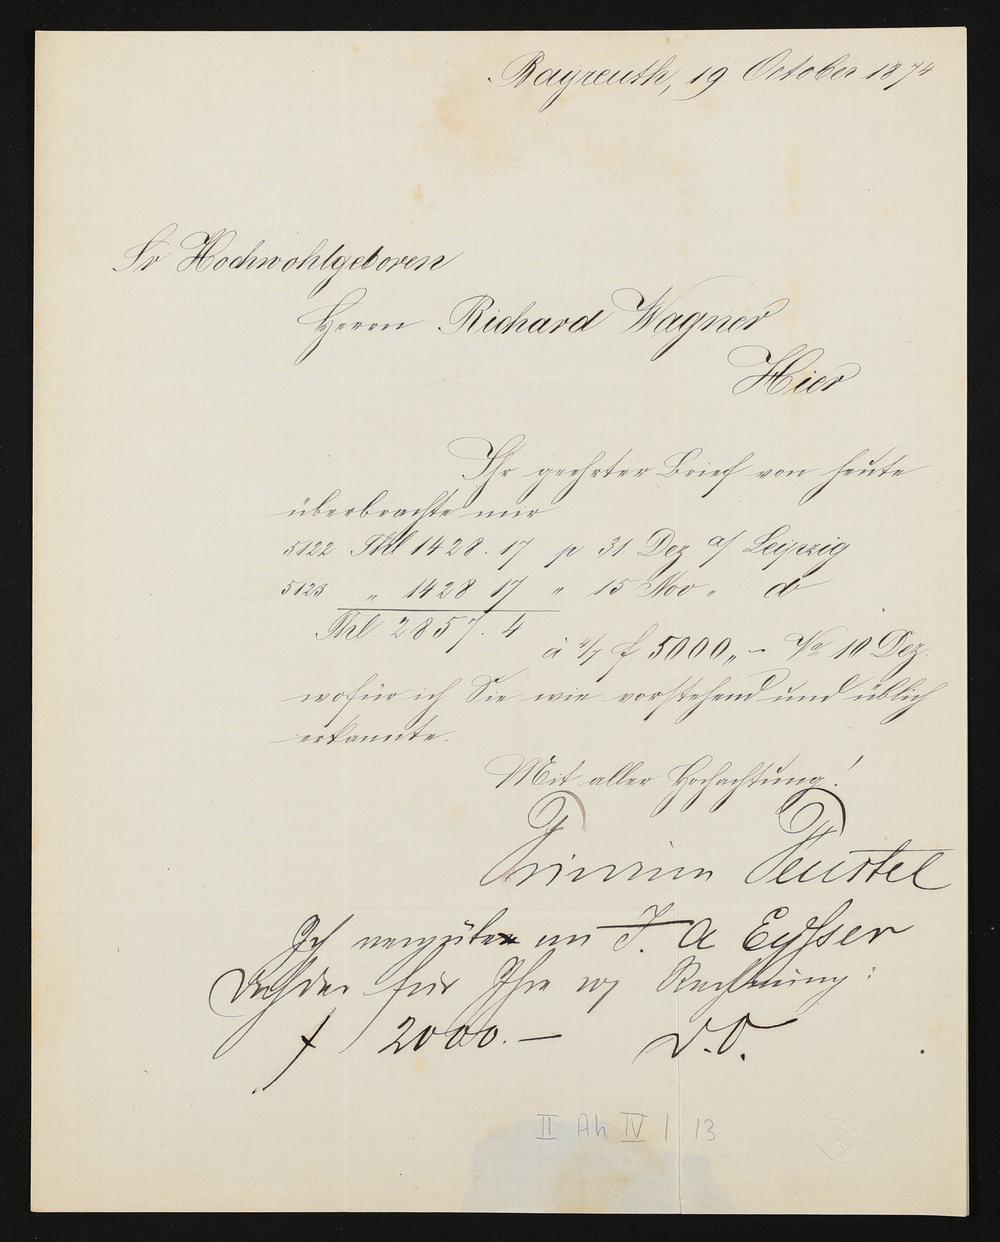 Bayreuth, 19 October 1874
Sr Hochwohlgeboren
Herrn Richard Wagner
Hier
Ihr geehrter Brief von heute
überbrachte mir
5122 Thl 1428. 17 p. 31 Dez a/ Leipzig
5123 „ 1428. 17 „ 15 Nov „ do
Thl. 2857. 4
à 4/7 f 5000,- Va 10 Dez.
wofür ich Sie wie vorstehend und üblich
erkannte.
Mit aller Hochachtung!
Feustel
Ich vergüte an J. A Eysser
für Ihre Rechnung:
f 2000.— D.O.
II Ah IV | 13